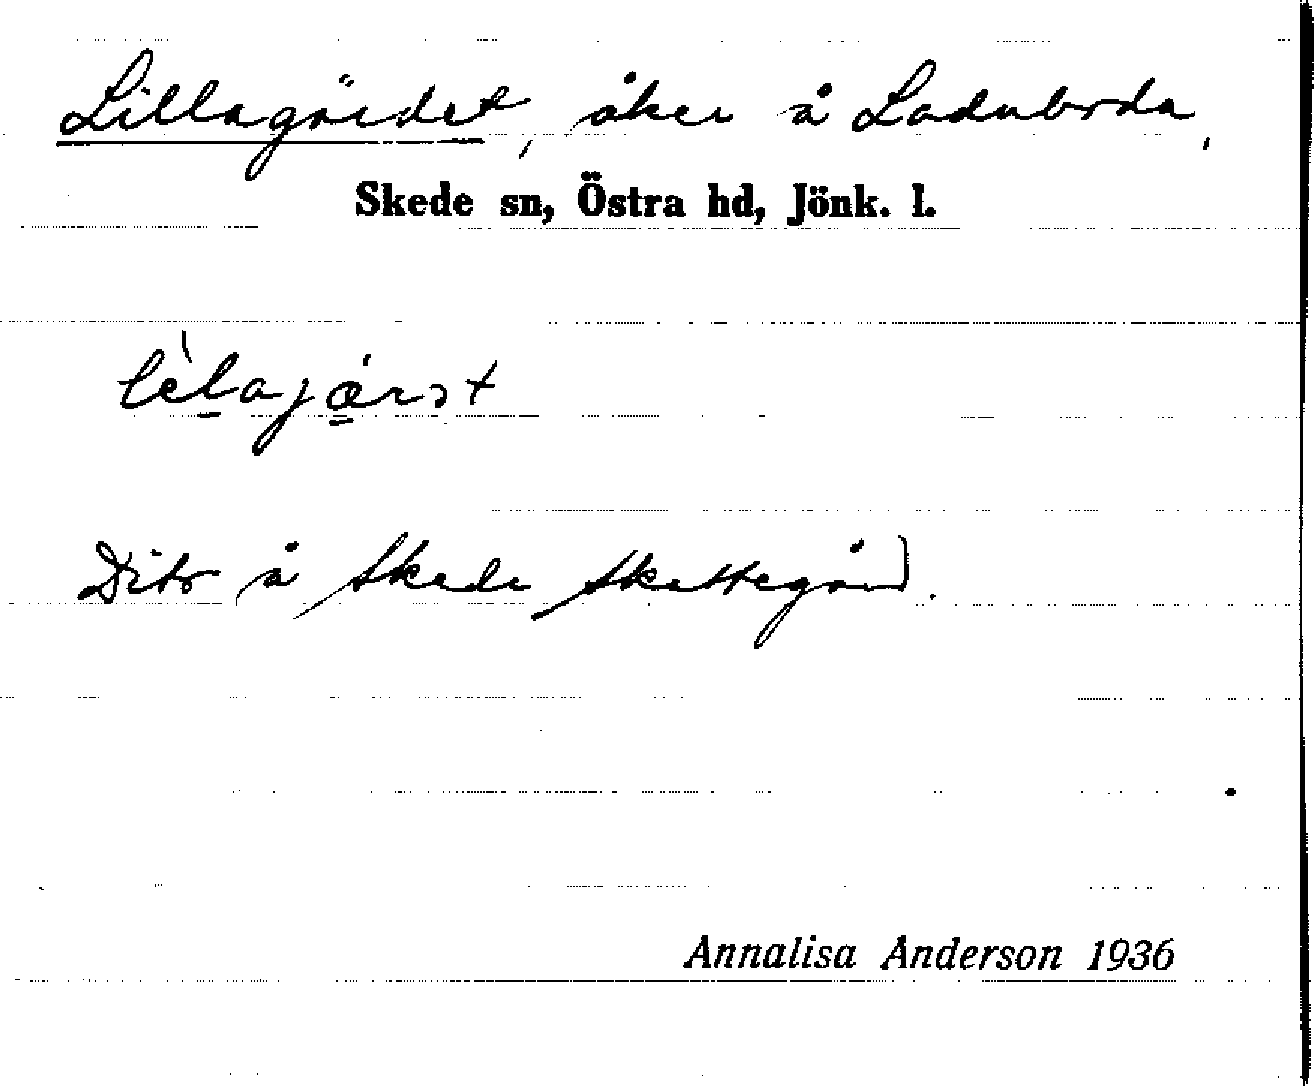 Lillagärdet, åker å Laduborda,
Skede sn, Östra hd, Jönk. l.
Dito å Skede Skattegård.
Annalisa Anderson 1936